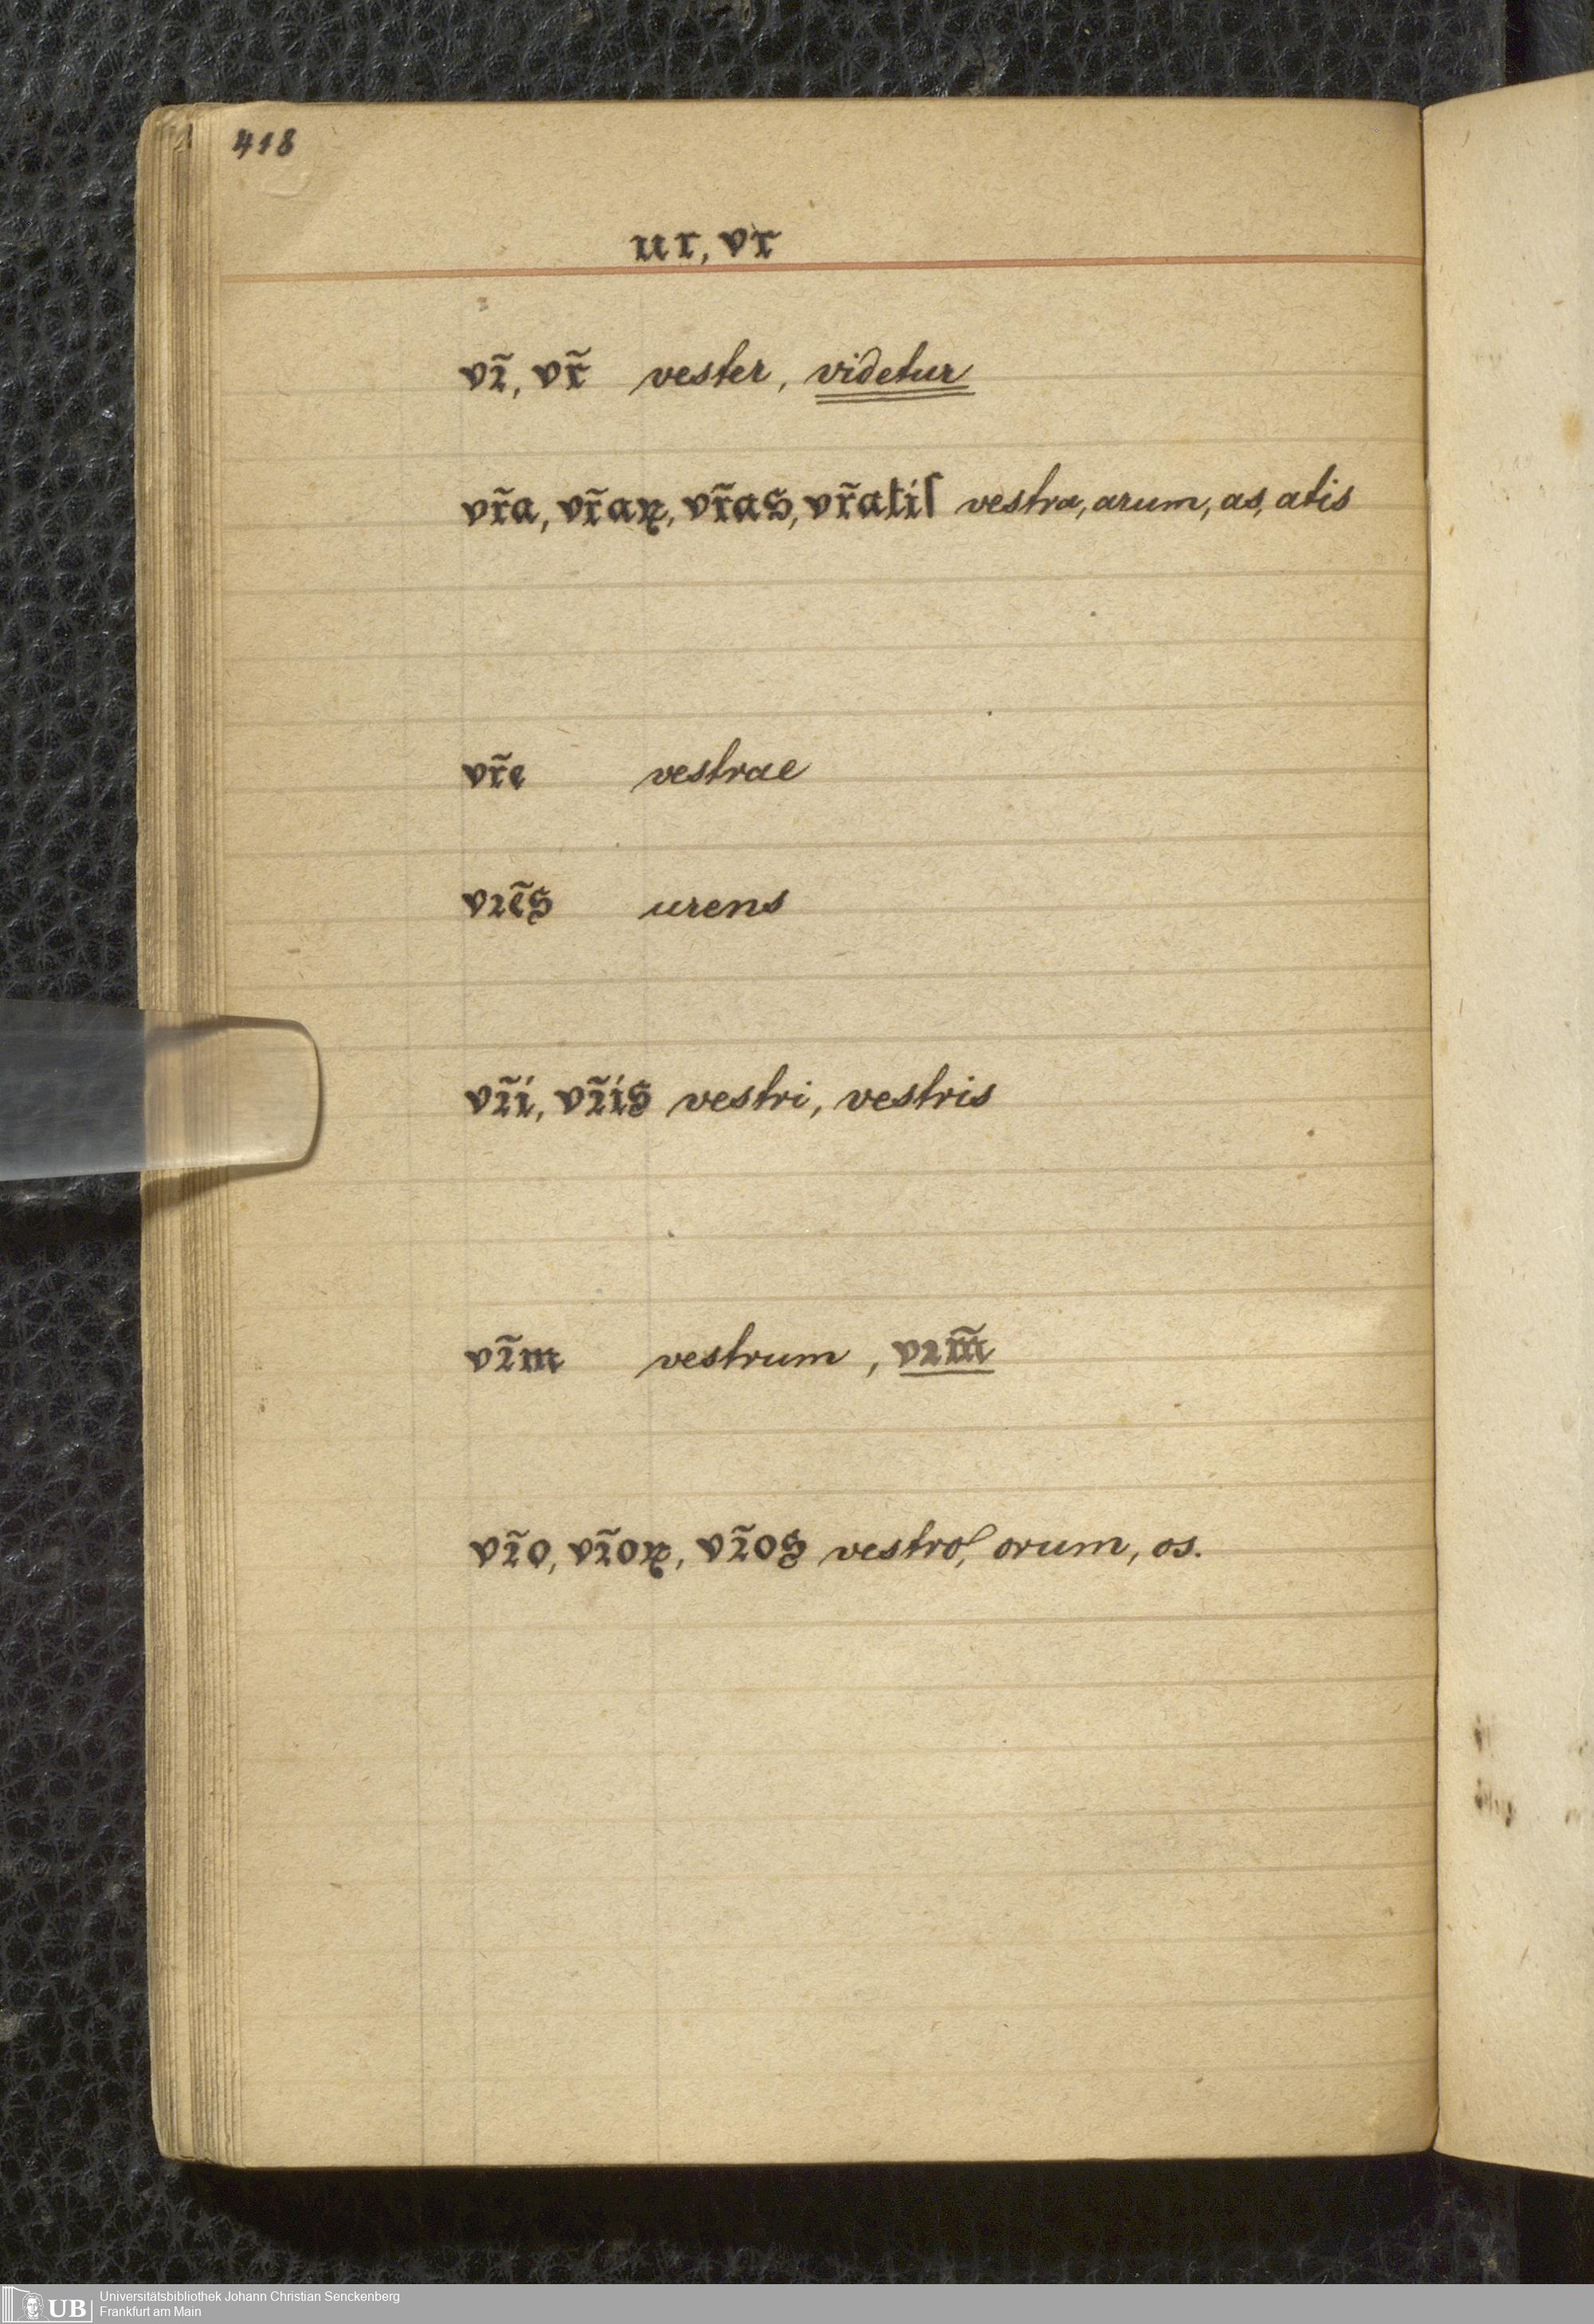 418
ur, vr
vꝛ̃, vr̃ vester, videtur
vr̃a, vr̃aꝝ, vr̃as, vr̃atiſ vestra, arum, as, atis
vr̃e vestrae
vꝛẽs urens
vꝛ̃i, vꝛ̃is vestri, vestris
vꝛ̃m vestrum, vꝛm̃
vꝛ̃o, vꝛ̃oꝝ, vꝛ̃os vestro, orum, os.
UB Universitätsbibliothek Johann Christian Senckenberg
Frankfurt am Main